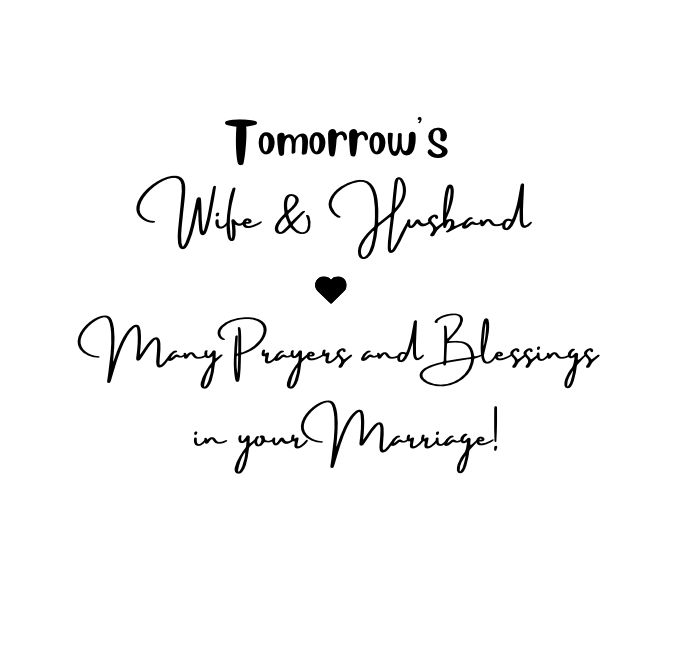 Tomorrow's
Wife & Husband
Many Prayers and Blessings
in your Marriage!